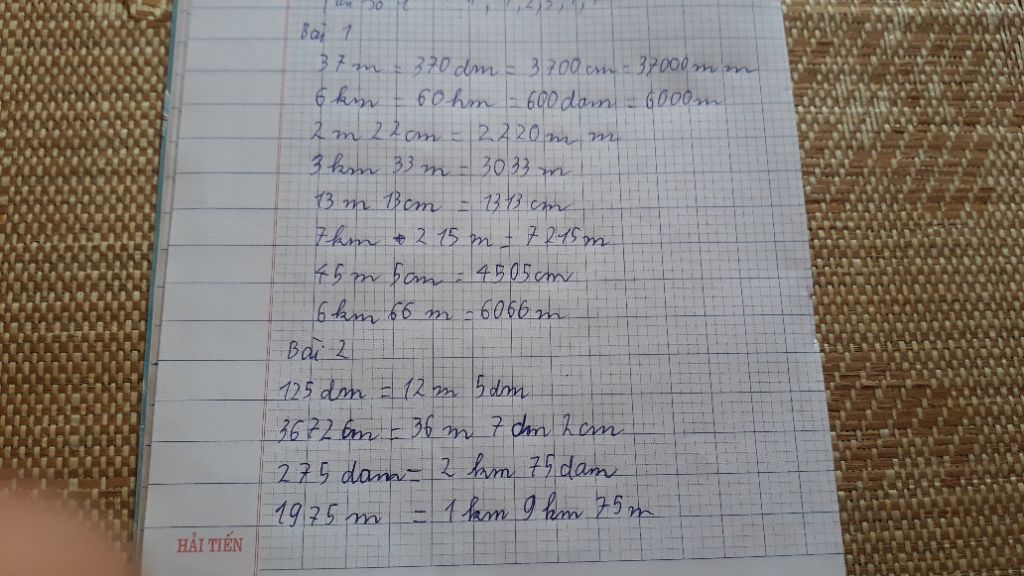 Bài 1
37 m = 370 dm = 3700 cm = 37000 m m
6 km = 60 hm = 600 dam = 6000 m
2 m 22 cm = 2220 m m
3 km 33 m = 3033 m
13 m 13 cm = 1313 cm
7 km 215 m = 7215 m
45 m 5 cm = 4505 cm
6 km 66 m = 6066 m
Bài 2
125 dm = 12 m 5 dm
3672 cm = 36 m 7 dm 2 cm
275 dam = 2 km 75 dam
1975 m = 1 km 9 hm 75 m
HẢI TIẾN